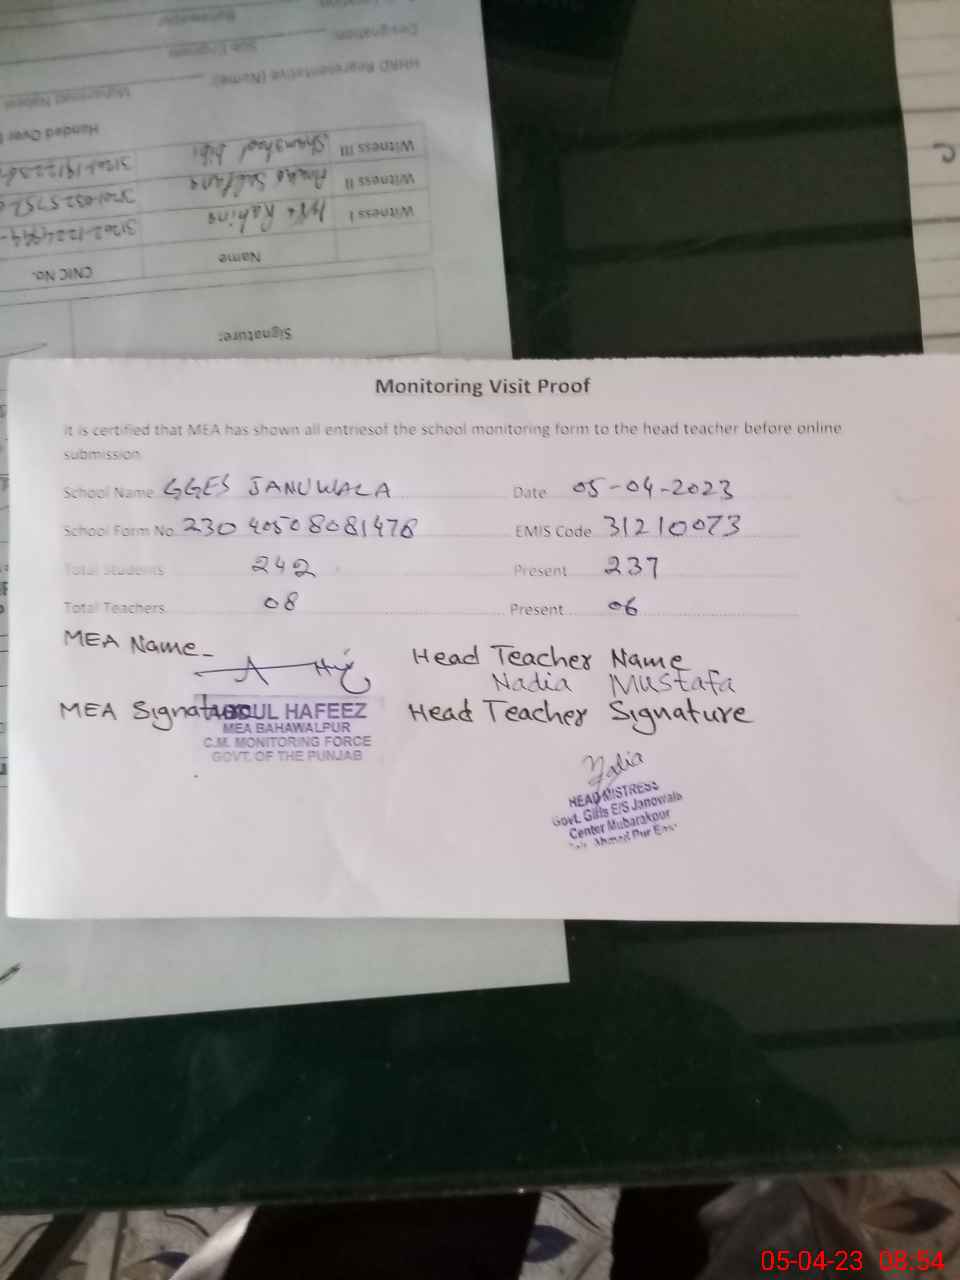 Designation:
Sub Engineer
HHRD Representative (Name):
Muhammad Nabeel
Handed Over
Witness III
Witness II
Witness I
Name
CNIC No.
Signature:
Monitoring Visit Proof
It is certified that MEA has shown all entriesof the school monitoring form to the head teacher before online
submission
School Name GGES JANUWALA Date 05-04-2023
School Form No. 230 40508081478 EMIS Code 31210073
Total Students 242 Present 237
Total Teachers 08 Present 06
MEA Name_
Head Teacher Name
Nadia Mustafa
MEA Signature Head Teacher Signature
ABDUL HAFEEZ
MEA BAHAWALPUR
C.M. MONITORING FORCE
GOVT. OF THE PUNJAB
Nadia
HEAD MISTRESS
Govt. Girls E/S Janowala
Center Mubarakpur
Ahmed Pur East
05-04-23 08:54